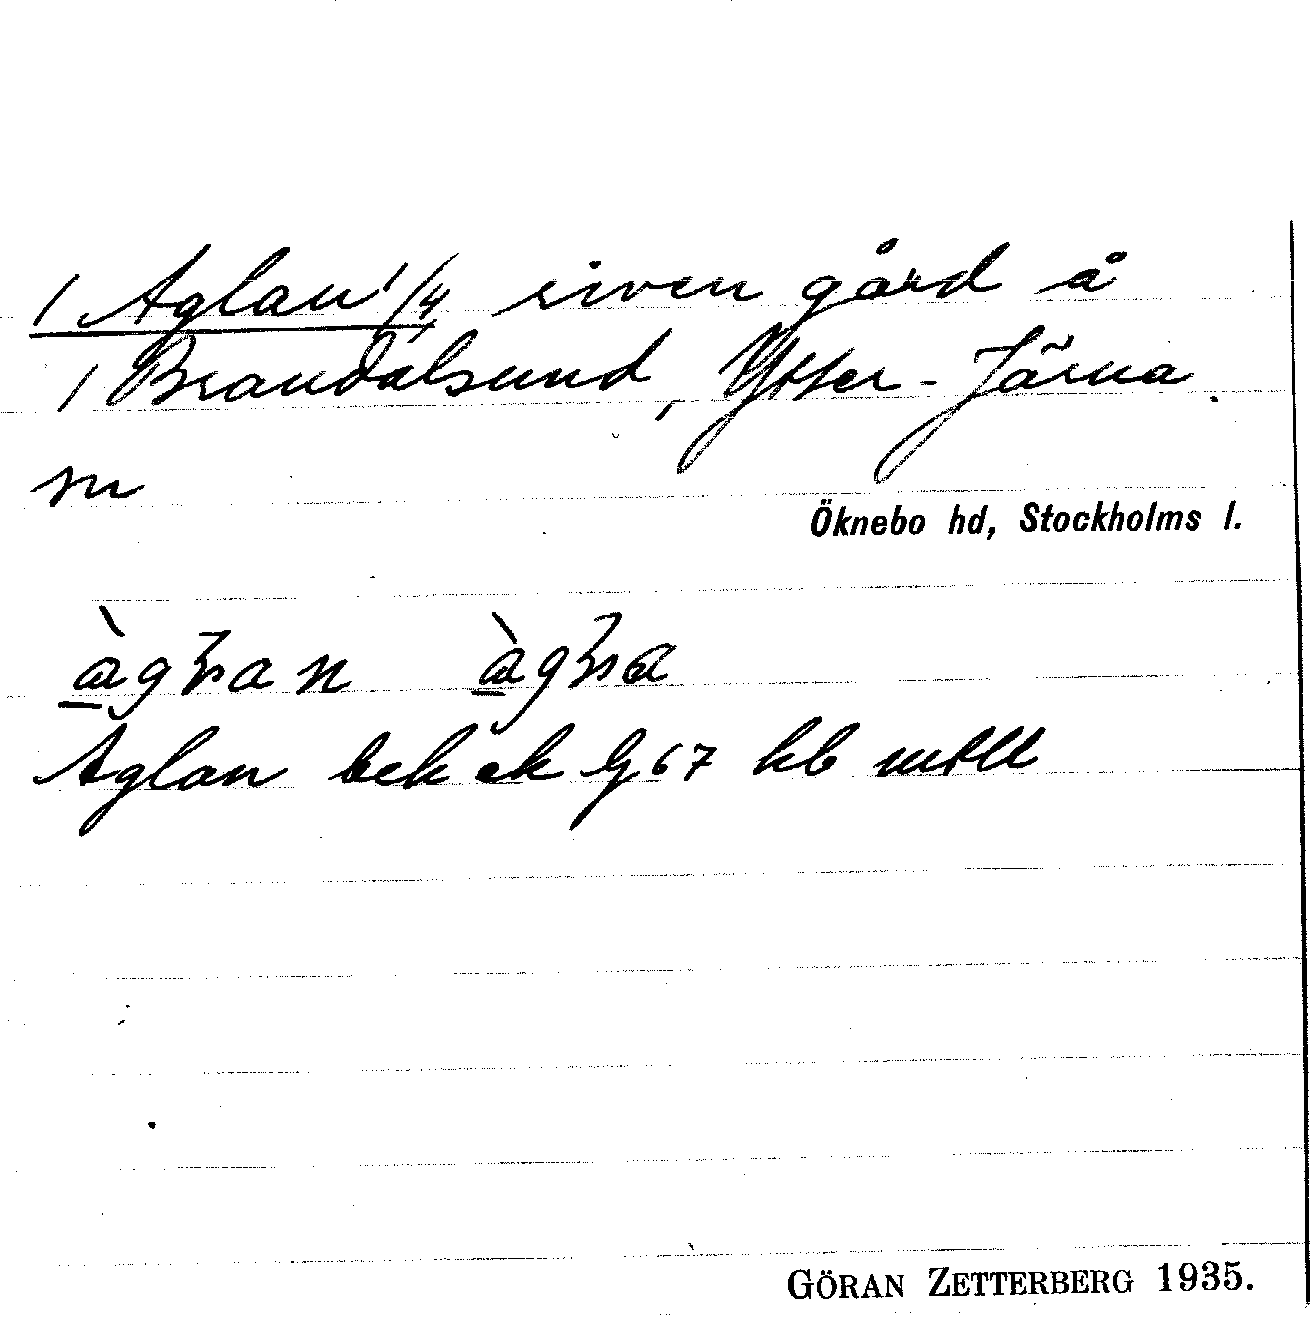 1 Aglan 1/4 riven gård å
1 Brandalsund, Ytter-Järna.
m
Öknebo hd, Stockholms l.
Aglan bek ek G 67 hb mtll
GÖRAN ZETTERBERG 1935.